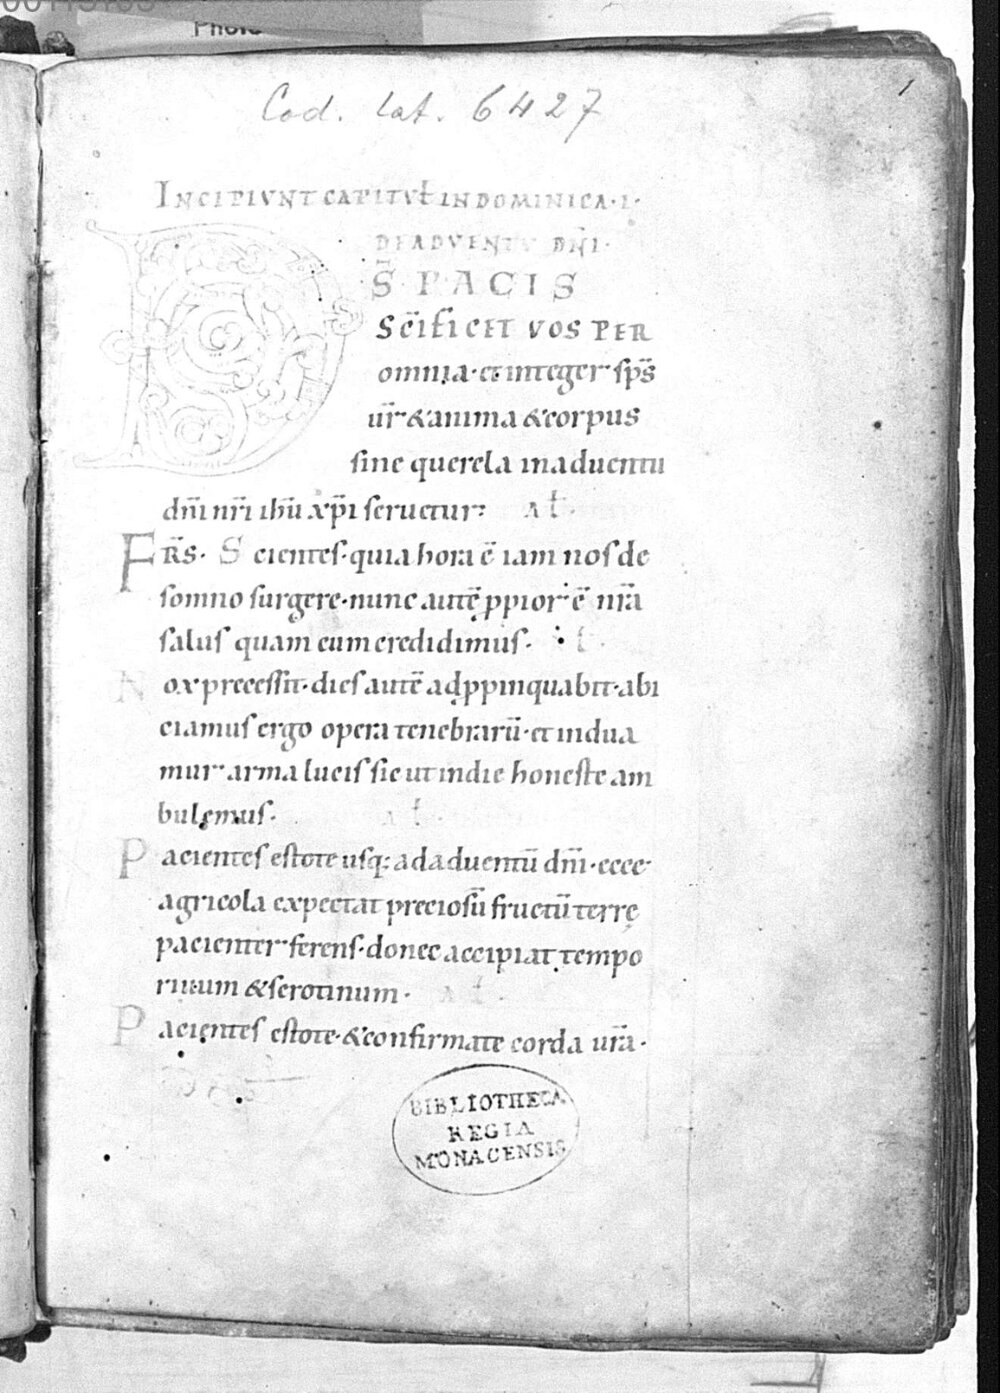 Cod. lat. 6427
1
INCIPIVNT CAPITVŁ IN DOMINICA · I ·
DE ADVENTV DÑI ·
D S̄ PACIS
SC̄IFICET VOS PER
omnia · et integer sp̄s
ur̄ & anima & corpus
sine querela in aduentu
dn̄i nr̄i ihū xp̄i seruetur : Ał ·
FR̄S · Scientes · quia hora ē iam nos de
somno surgere · nunc autē ꝓpior ē nr̄a
salus quam cum credidimus · Ał ·
Nox precessit · dies autē adꝓpinquabit · abi
ciamus ergo opera tenebrarū · et indua
mur arma lucis sic ut in die honeste am
bulemus · Ał ·
Pacientes estote usq; ad aduentū dn̄i · ecce
agricola expectat preciosū fructū terrę
pacienter ferens · donec accipiat tempo
riuum & serotinum · Ał ·
Pacientes estote · & confirmate corda ur̄a ·
BIBLIOTHECA
REGIA
MONACENSIS